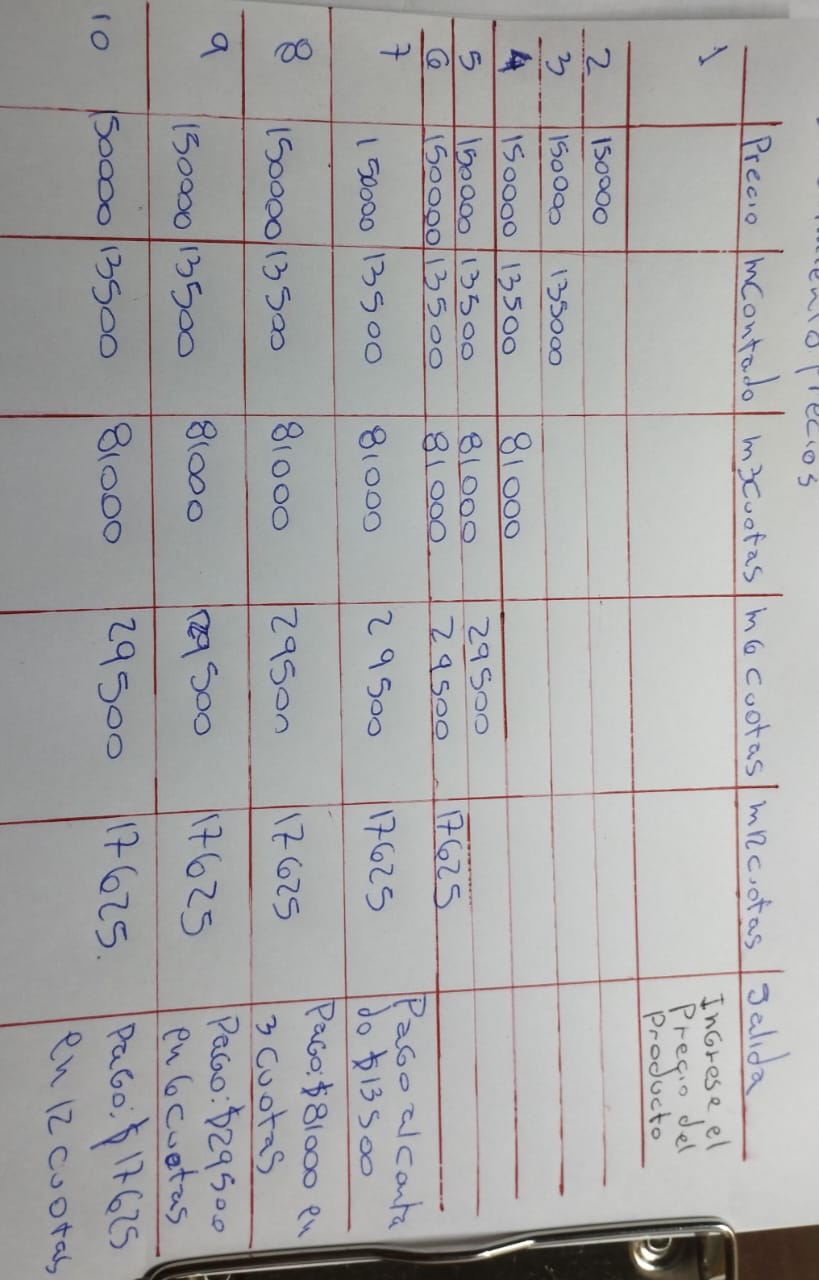 Precios
Precio mContado m3Cuotas m6 cuotas m12 cuotas Salida
1 Ingrese el
Precio del
Producto
2 150000
3 150000 135000
4 150000 13500 81000
5 150000 13500 81000 29500
6 150000 13500 81000 29500 17625
7 150000 13500 81000 29500 17625 Pago al conta
do $13500
8 150000 13500 81000 29500 17625 Pago: $81000 en
3 cuotas
9 150000 13500 81000 29500 17625 Pago: $29500
en 6 cuotas
10 150000 13500 81000 29500 17625. Pago: $17625
en 12 cuotas